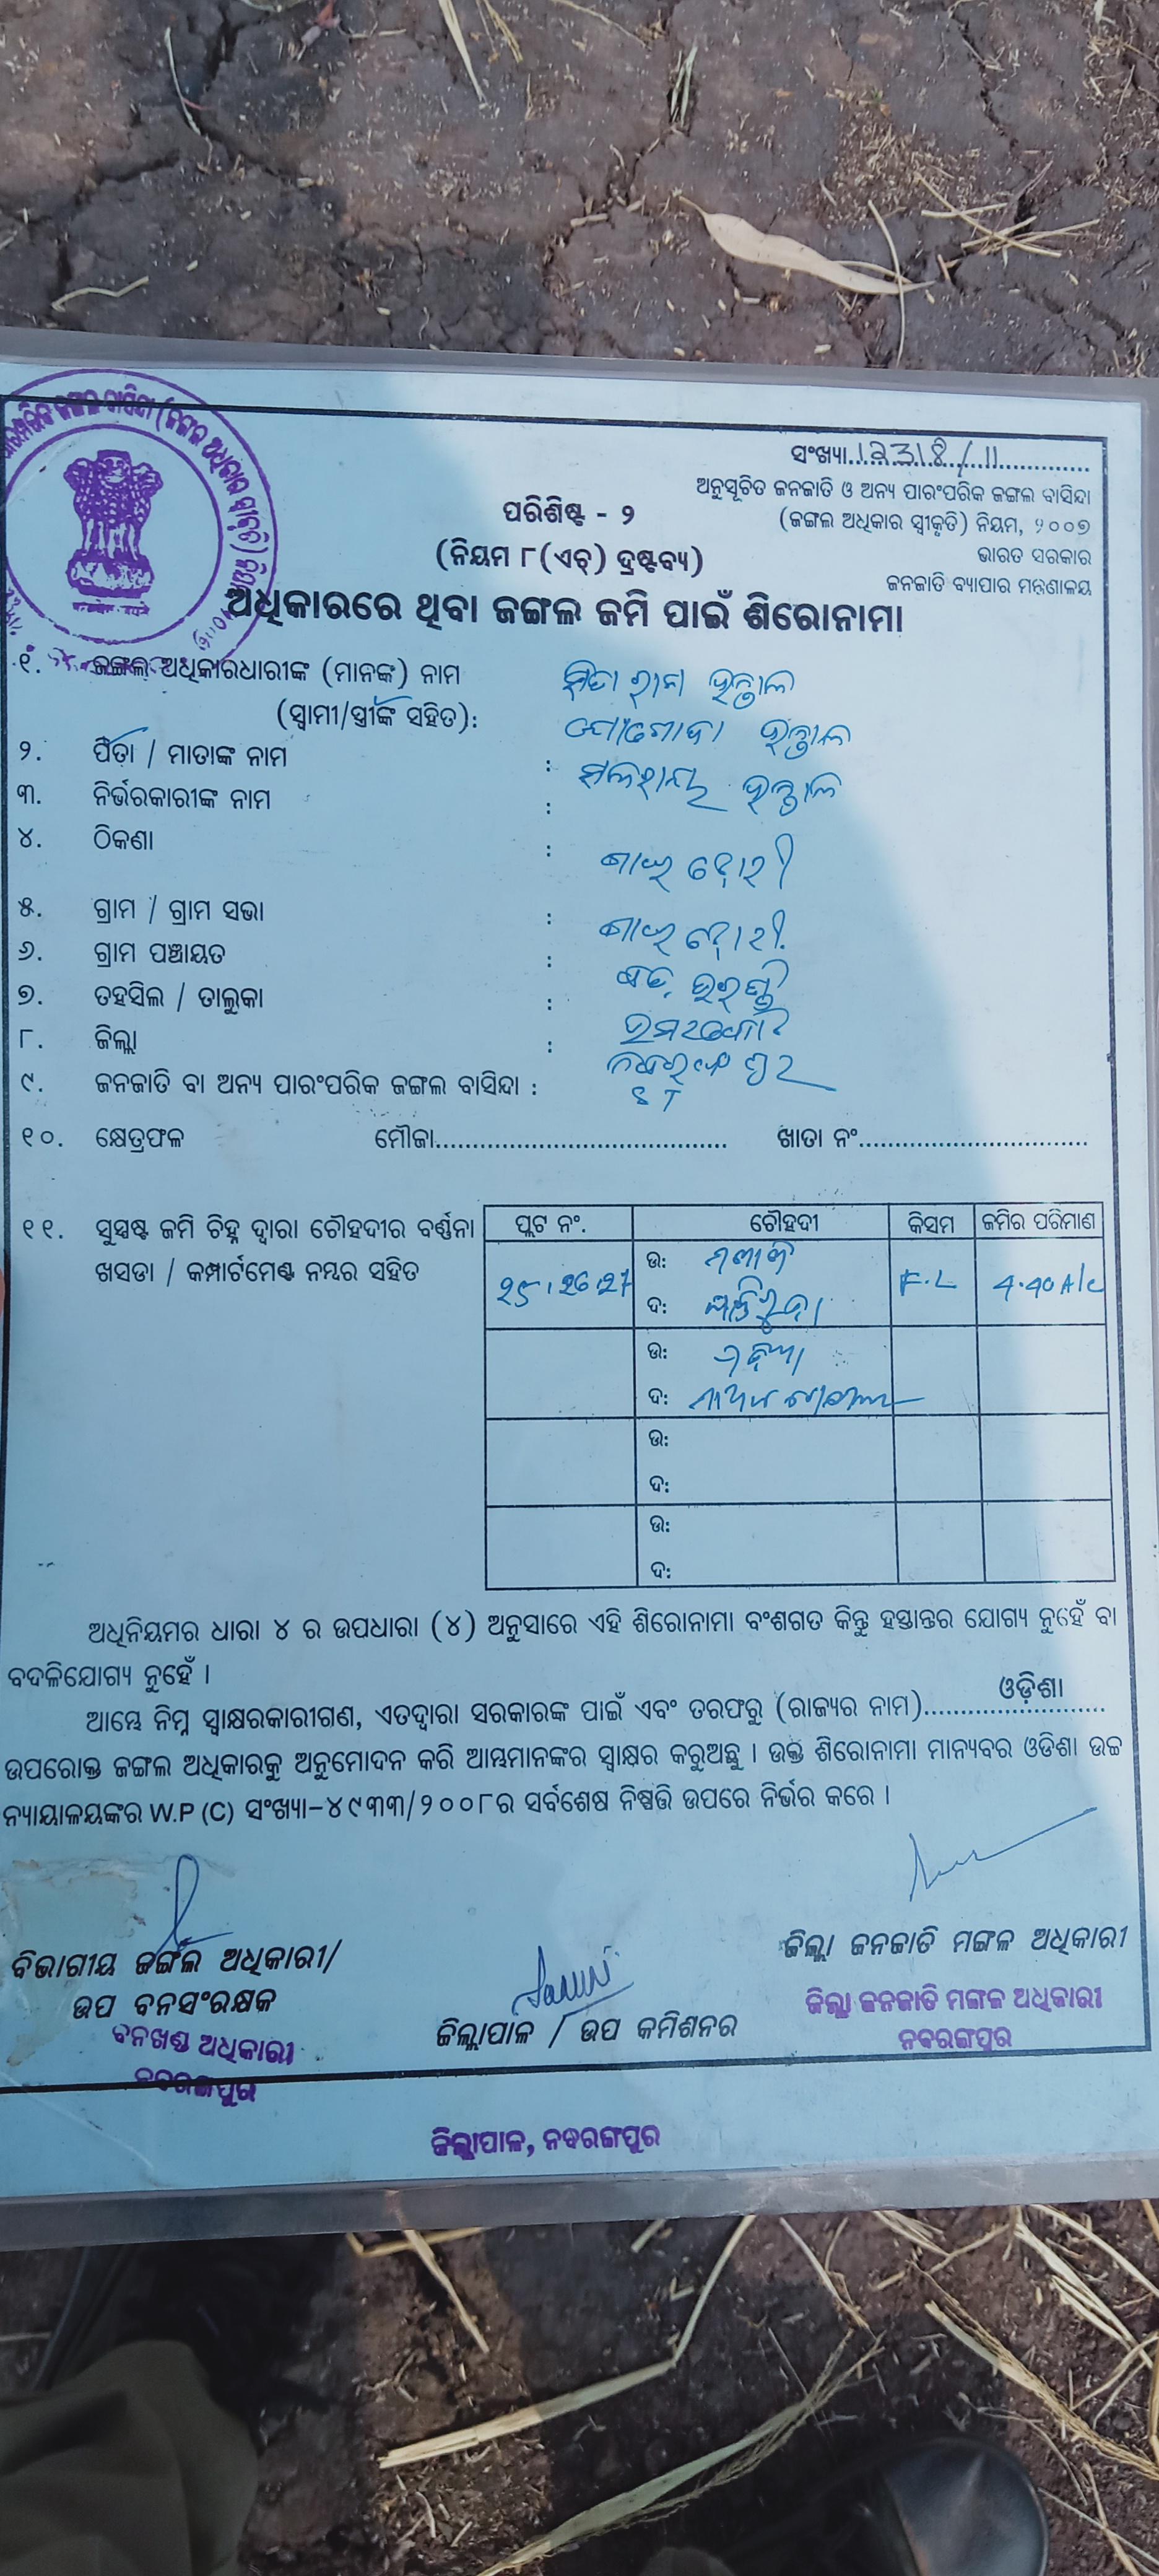 ସଂଖ୍ୟା 12318/11
ଅନୁସୂଚିତ ଜନଜାତି ଓ ଅନ୍ୟ ପାରଂପରିକ ଜଙ୍ଗଲ ବାସିନ୍ଦା
(ଜଙ୍ଗଲ ଅଧିକାର ସ୍ୱୀକୃତି) ନିୟମ, ୨୦୦୭
ଭାରତ ସରକାର
ଜନଜାତି ବ୍ୟାପାର ମନ୍ତ୍ରଣାଳୟ
ପରିଶିଷ୍ଟ - ୨
(ନିୟମ ୮(ଏଚ୍) ଦ୍ରଷ୍ଟବ୍ୟ)
ଅଧିକାରରେ ଥିବା ଜଙ୍ଗଲ ଜମି ପାଇଁ ଶିରୋନାମା
୧. ଜଙ୍ଗଲ ଅଧିକାରଧାରୀଙ୍କ (ମାନଙ୍କ) ନାମ
(ସ୍ୱାମୀ/ସ୍ତ୍ରୀଙ୍କ ସହିତ):
୨. ପିତା / ମାତାଙ୍କ ନାମ :
୩. ନିର୍ଭରକାରୀଙ୍କ ନାମ :
୪. ଠିକଣା :
୫. ଗ୍ରାମ / ଗ୍ରାମ ସଭା :
୬. ଗ୍ରାମ ପଞ୍ଚାୟତ :
୭. ତହସିଲ / ତାଲୁକା : ଉମରକୋଟ
୮. ଜିଲ୍ଲା : ନବରଙ୍ଗପୁର
୯. ଜନଜାତି ବା ଅନ୍ୟ ପାରଂପରିକ ଜଙ୍ଗଲ ବାସିନ୍ଦା : ST
୧୦. କ୍ଷେତ୍ରଫଳ ମୌଜା ଖାତା ନଂ
୧୧. ସୁସ୍ପଷ୍ଟ ଜମି ଚିହ୍ନ ଦ୍ୱାରା ଚୌହଦୀର ବର୍ଣ୍ଣନା
ଖସଡା / କମ୍ପାର୍ଟମେଣ୍ଟ ନମ୍ବର ସହିତ
ପ୍ଲଟ ନଂ. ଚୌହଦୀ କିସମ ଜମିର ପରିମାଣ
25, 26, 27 ଉ: F.L 4.40 A/c
ଦ:
ଉ:
ଦ:
ଉ:
ଦ:
ଉ:
ଦ:
ଅଧିନିୟମର ଧାରା ୪ ର ଉପଧାରା (୪) ଅନୁସାରେ ଏହି ଶିରୋନାମା ବଂଶଗତ କିନ୍ତୁ ହସ୍ତାନ୍ତର ଯୋଗ୍ୟ ନୁହେଁ ବା
ବଦଳିଯୋଗ୍ୟ ନୁହେଁ ।
ଆମ୍ଭେ ନିମ୍ନ ସ୍ୱାକ୍ଷରକାରୀଗଣ, ଏତଦ୍ୱାରା ସରକାରଙ୍କ ପାଇଁ ଏବଂ ତରଫରୁ (ରାଜ୍ୟର ନାମ) ଓଡ଼ିଶା
ଉପରୋକ୍ତ ଜଙ୍ଗଲ ଅଧିକାରକୁ ଅନୁମୋଦନ କରି ଆମ୍ଭମାନଙ୍କର ସ୍ୱାକ୍ଷର କରୁଅଛୁ । ଉକ୍ତ ଶିରୋନାମା ମାନ୍ୟବର ଓଡିଶା ଉଚ୍ଚ
ନ୍ୟାୟାଳୟଙ୍କର W.P (C) ସଂଖ୍ୟା–୪୯୩୩/୨୦୦୮ର ସର୍ବଶେଷ ନିଷ୍ପତ୍ତି ଉପରେ ନିର୍ଭର କରେ ।
ବିଭାଗୀୟ ଜଙ୍ଗଲ ଅଧିକାରୀ/
ଉପ ବନସଂରକ୍ଷକ
ବନଖଣ୍ଡ ଅଧିକାରୀ
ନବରଙ୍ଗପୁର
ଜିଲ୍ଲାପାଳ / ଉପ କମିଶନର
ଜିଲ୍ଲା ଜନଜାତି ମଙ୍ଗଳ ଅଧିକାରୀ
ଜିଲ୍ଲା ଜନଜାତି ମଙ୍ଗଳ ଅଧିକାରୀ
ନବରଙ୍ଗପୁର
ଜିଲ୍ଲାପାଳ, ନବରଙ୍ଗପୁର